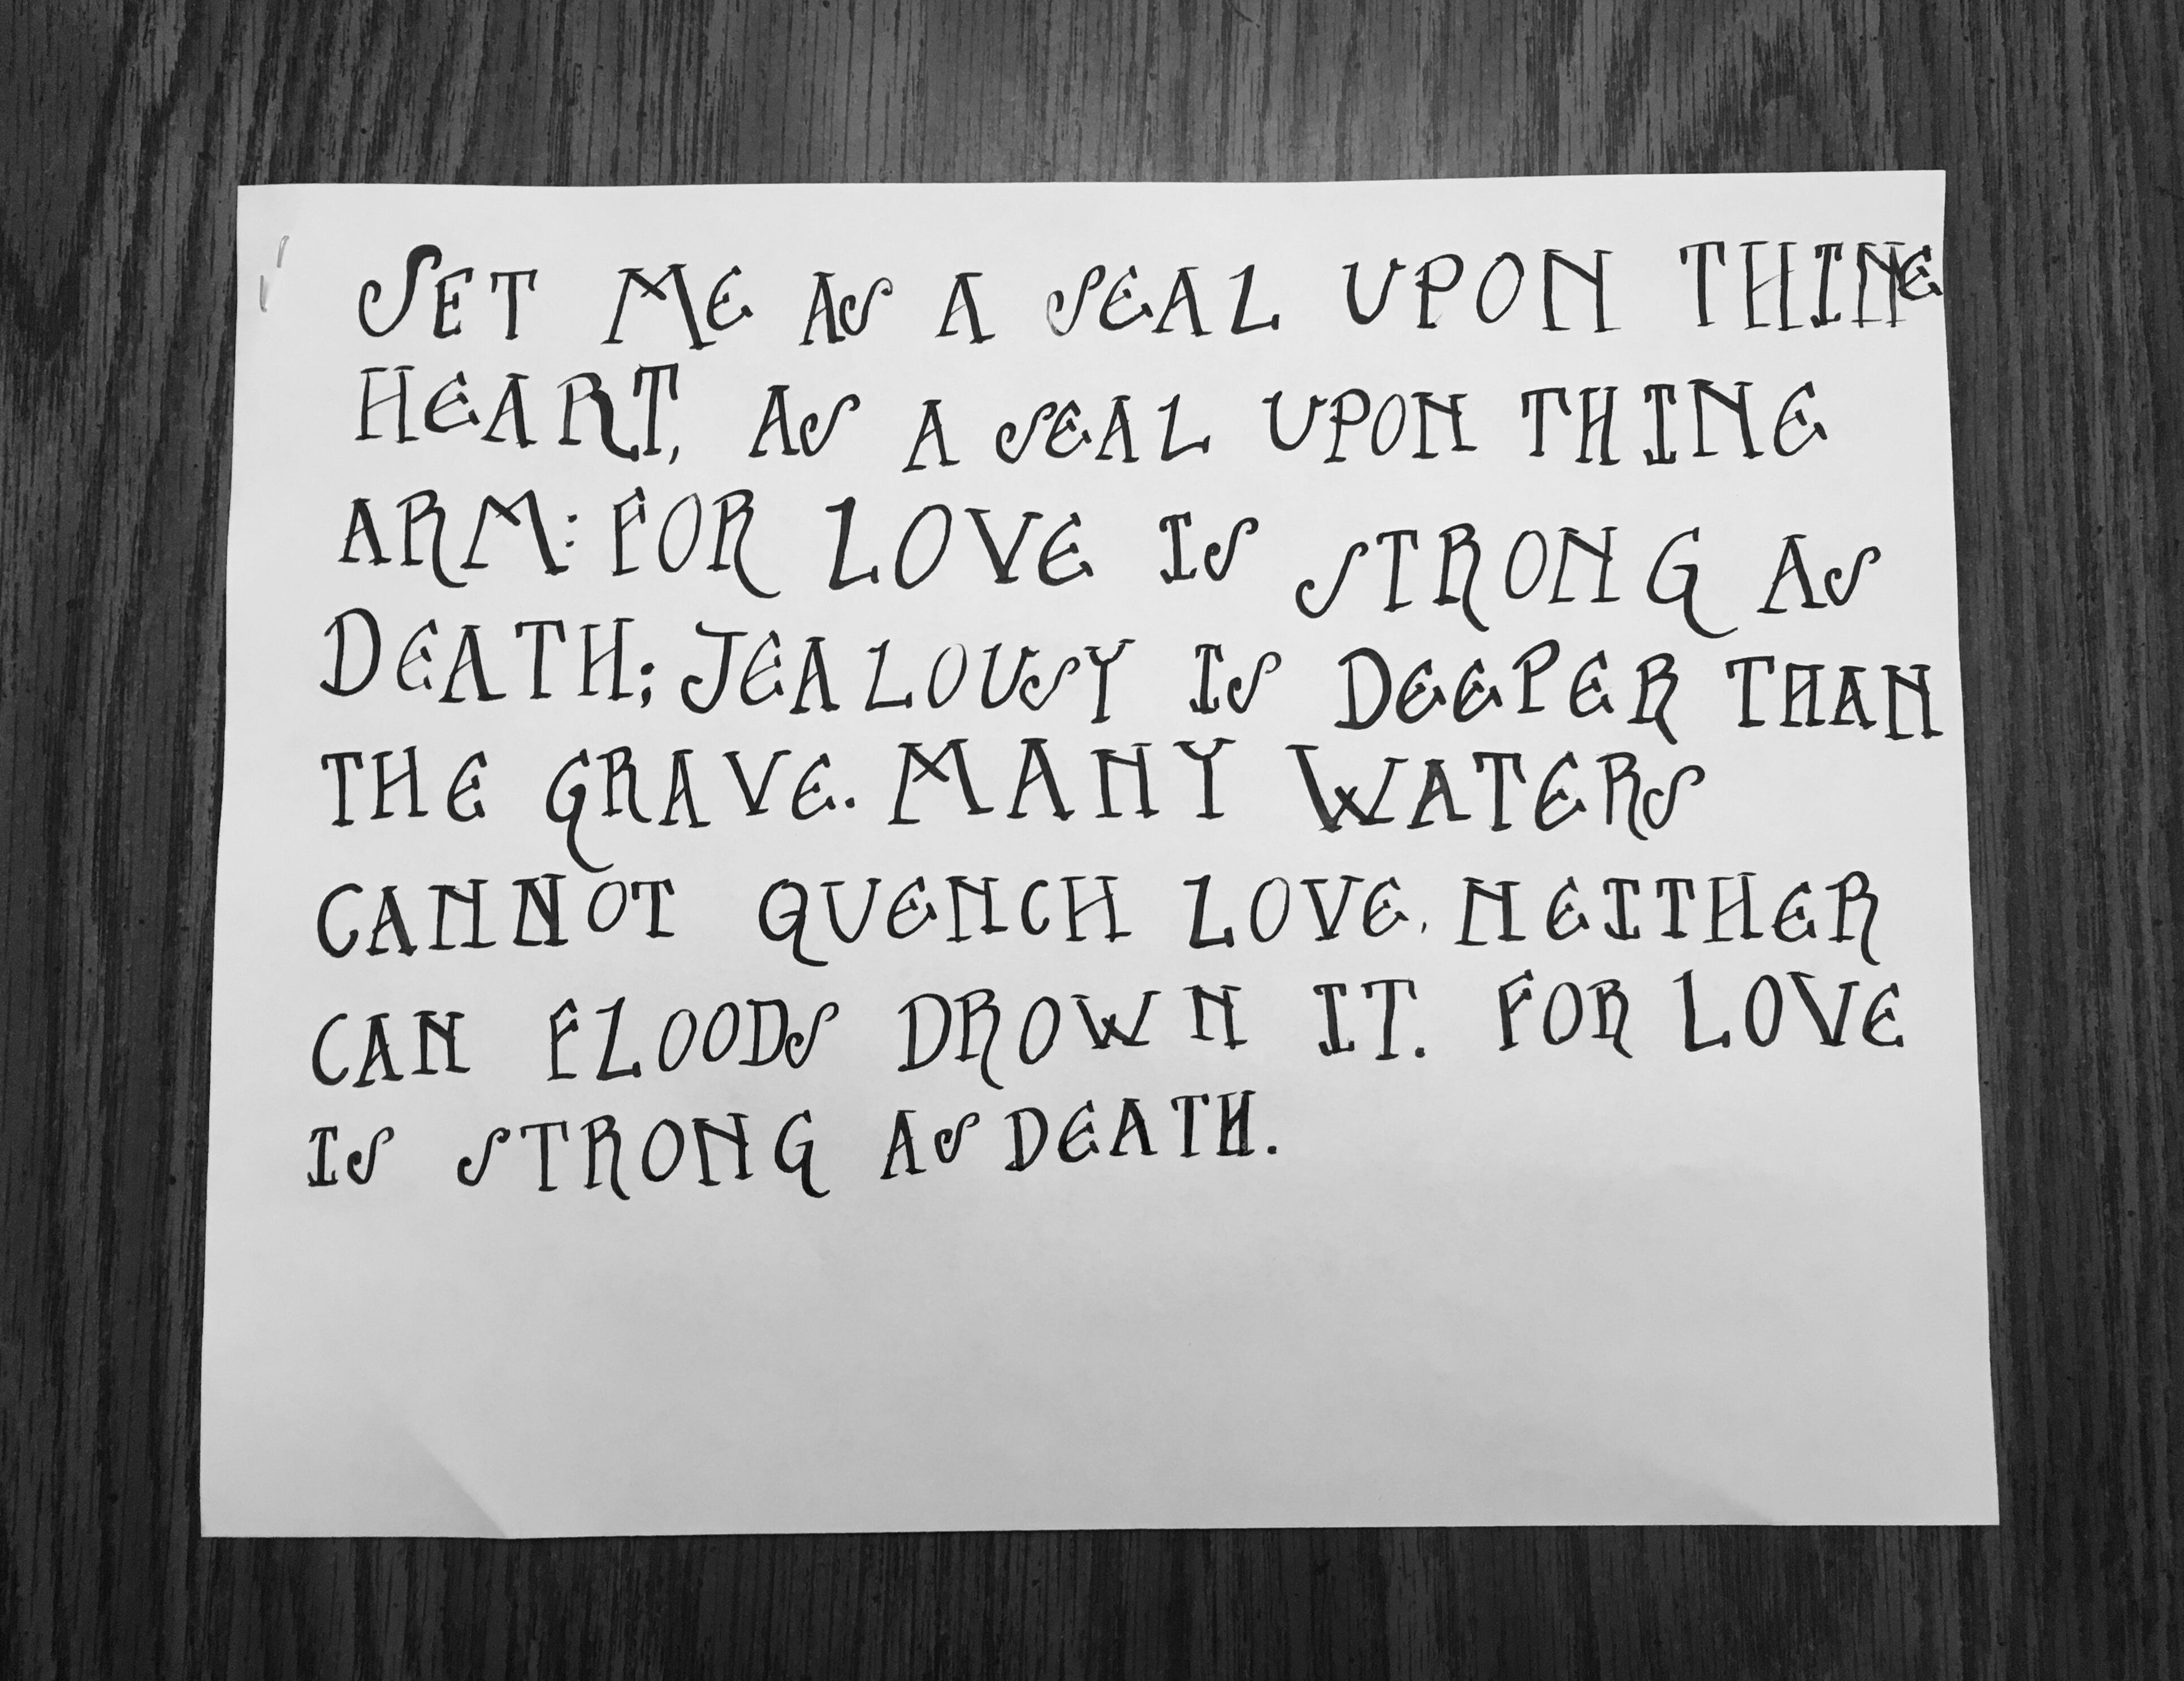 SET ME AS A SEAL UPON THINE
HEART, AS A SEAL UPON THINE
ARM: FOR LOVE IS STRONG AS
DEATH; JEALOUSY IS DEEPER THAN
THE GRAVE. MANY WATERS
CANNOT QUENCH LOVE, NEITHER
CAN FLOODS DROWN IT. FOR LOVE
IS STRONG AS DEATH.